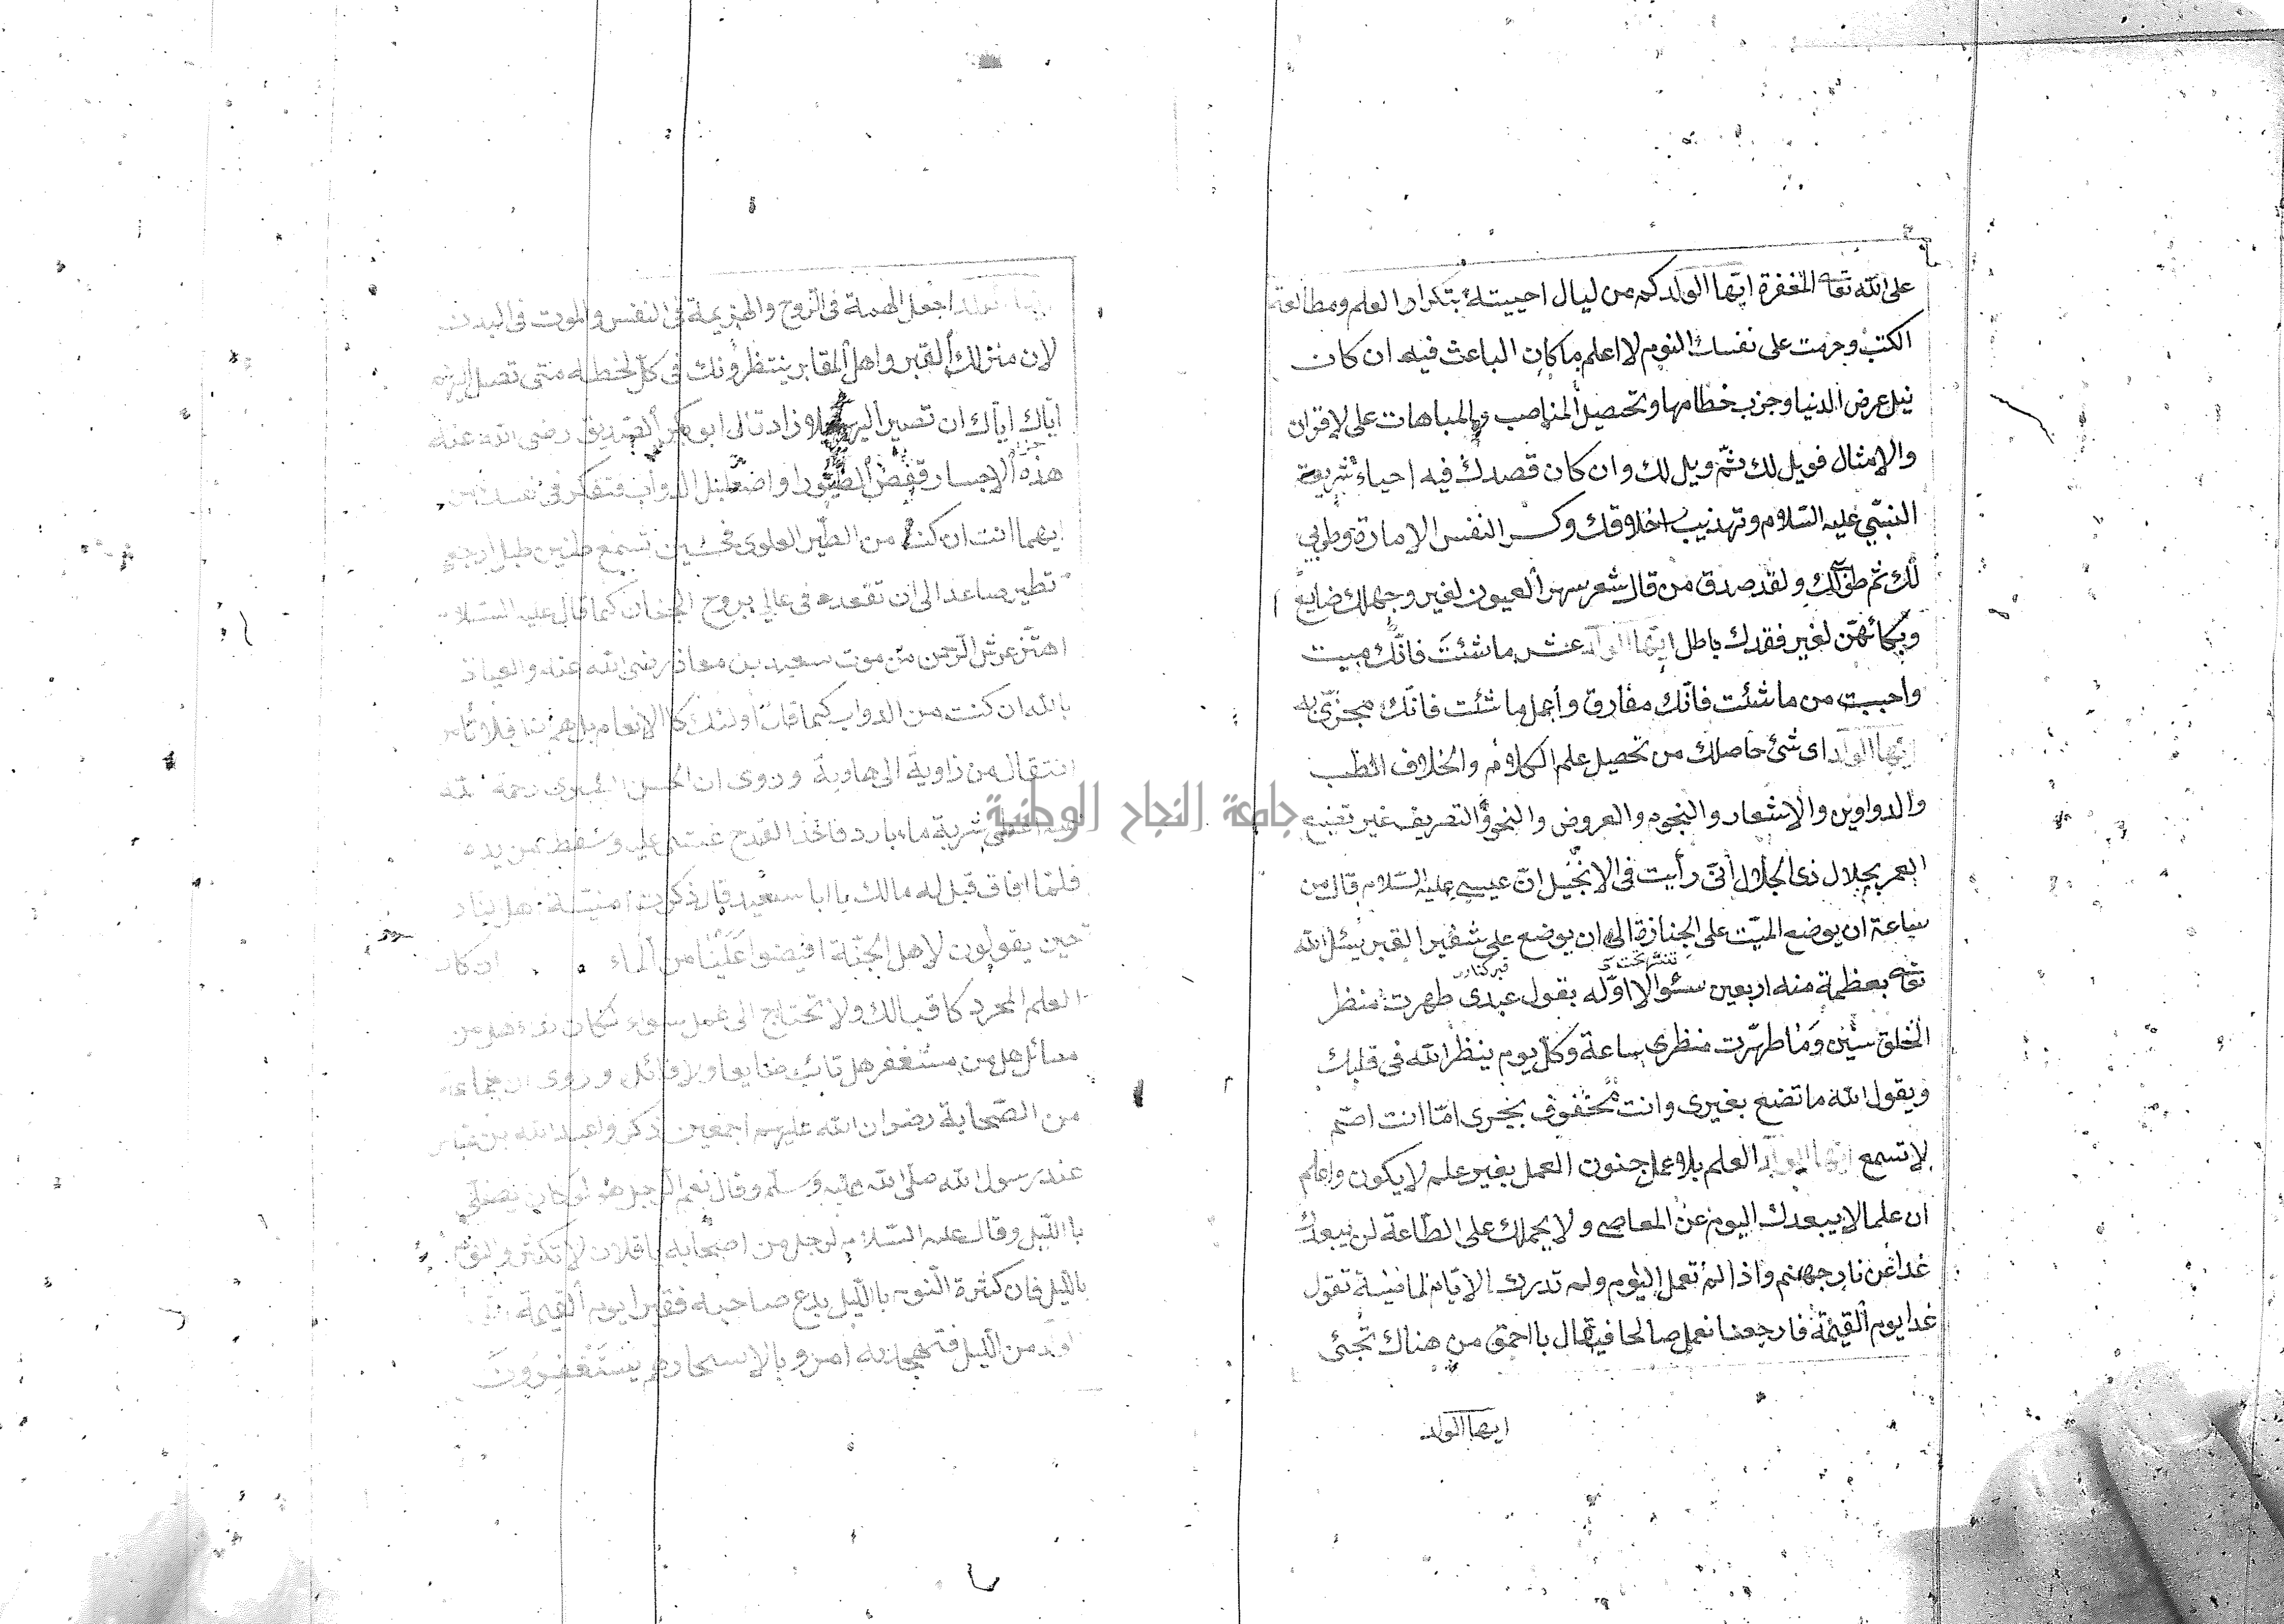 على الله تعالى المغفرة ايها الولد كم من ليال احييتها بتكرار العلم ومطالعة
الكتب وحرمت على نفسك النوم لا اعلم ما كان الباعث فيه ان كان
نيل عرض الدنيا وجزب خطامها وتحصيل المناصب والمباهات على الاقران
والامثال فويل لك ثم ويل لك وان كان قصدك فيه احياء شريعة
النبي عليه السلام وتهذيب اخلاقك وكسر النفس الامارة وطوبي
لك ثم طوبى لك ولقد صدق من قال شعر سهر العيون لغير وجهك ضايع
وبكائهن لغير فقدك باطل ايها الولد عش ما شئت فانك ميت
واحبب من ما شئت فانك مفارق واعمل ما شئت فانك مجزي به
ايها الولد اى شئ حاصلك من تحصيل علم الكلام والخلاف الطب
والدواوين والاشعار والنجوم والعروض والنحو والتصريف غير تضيع
العمر بجلال ذى الجلال انى رأيت في الانجيل ان عيسى عليه السلام قال من
ساعة ان يوضع الميت على الجنازة الى ان يوضع على شفير القبر يسئل الله
تعالى بعظمة منه اربعين سئوالا اوله يقول عبدى طهرت منظر
الخلق سنين وما طهرت منظرى ساعة وكل يوم ينظر الله فى قلبك
ويقول الله ما تصنع بغيرى وانت محفوف بخيرى اما انت اصم
لا تسمع ايها الولد العلم بلا عمل جنون العمل بغير علم لا يكون واعلم
ان علما لا يبعدك اليوم عن المعاصى ولا يحملك على الطاعة لن يبعدك
غدا عن نار جهنم واذا لم تعمل اليوم ولم تدرك الايام لماضية تقول
غدا يوم القيمة فارجعنا نعمل صالحا فيقال يا احمق من هناك تجئى
ايها الولد
ايها الولد اجعل الهمة فى الروح والهزيمة فى النفس والموت فى البدن
لان منزلك القبر واهل المقابر ينتظرونك فى كل لحظه متى تصل اليهم
اياك اياك ان تصير اليهم بلا زاد قال ابو بكر الصديق رضى الله عنه
هذه الاجساد قفص الطيور او اضطبل الدواب فتفكر فى نفسك من
ايهما انت ان كنت من الطير العلوى فحين تسمع طنين طبل ارجعي
تطير صاعدا الى ان تقعد فى عالي بروج الجنان كما قال عليه السلام
اهتز عرش الرحمن من موت سعيد بن معاذ رضى الله عنه والعياذ
بالله ان كنت من الدواب كما قال اولئك كالانعام بل هم
انتقالك من زاوية الى هاوية وروى ان الحسن البصرى رحمة الله
اعطى شربة ماء بارد فاخذ القدح غشى عليه وسقط من يده
فلما افاق قيل له مالك يا ابا سعيد قال ذكرت امنية اهل النار
حين يقولون لاهل الجنة افيضوا علينا من الماء ان كان
العلم المجرد كافيا لك ولا تحتاج الى عمل سواه لكان نداء هل من
سائل هل من مستغفر هل تائب ضايعا ولا فائل وروى ان جماعة
من الصحابة رضوان الله عليهم اجمعين ذكروا عبد الله بن عباس
عند رسول الله صلى الله عليه وسلم وقال نعم الرجل هو لو كان يصلى
بالليل وقال عليه السلام لرجل من اصحابه يا فلان لا تكثر والنوم
بالليل فان كثرة النوم بالليل يدع صاحبه فقيرا يوم القيمة
ومن الليل فتهجد به امر وبالاسحار هم يستغفرون
جامعة النجاح الوطنية